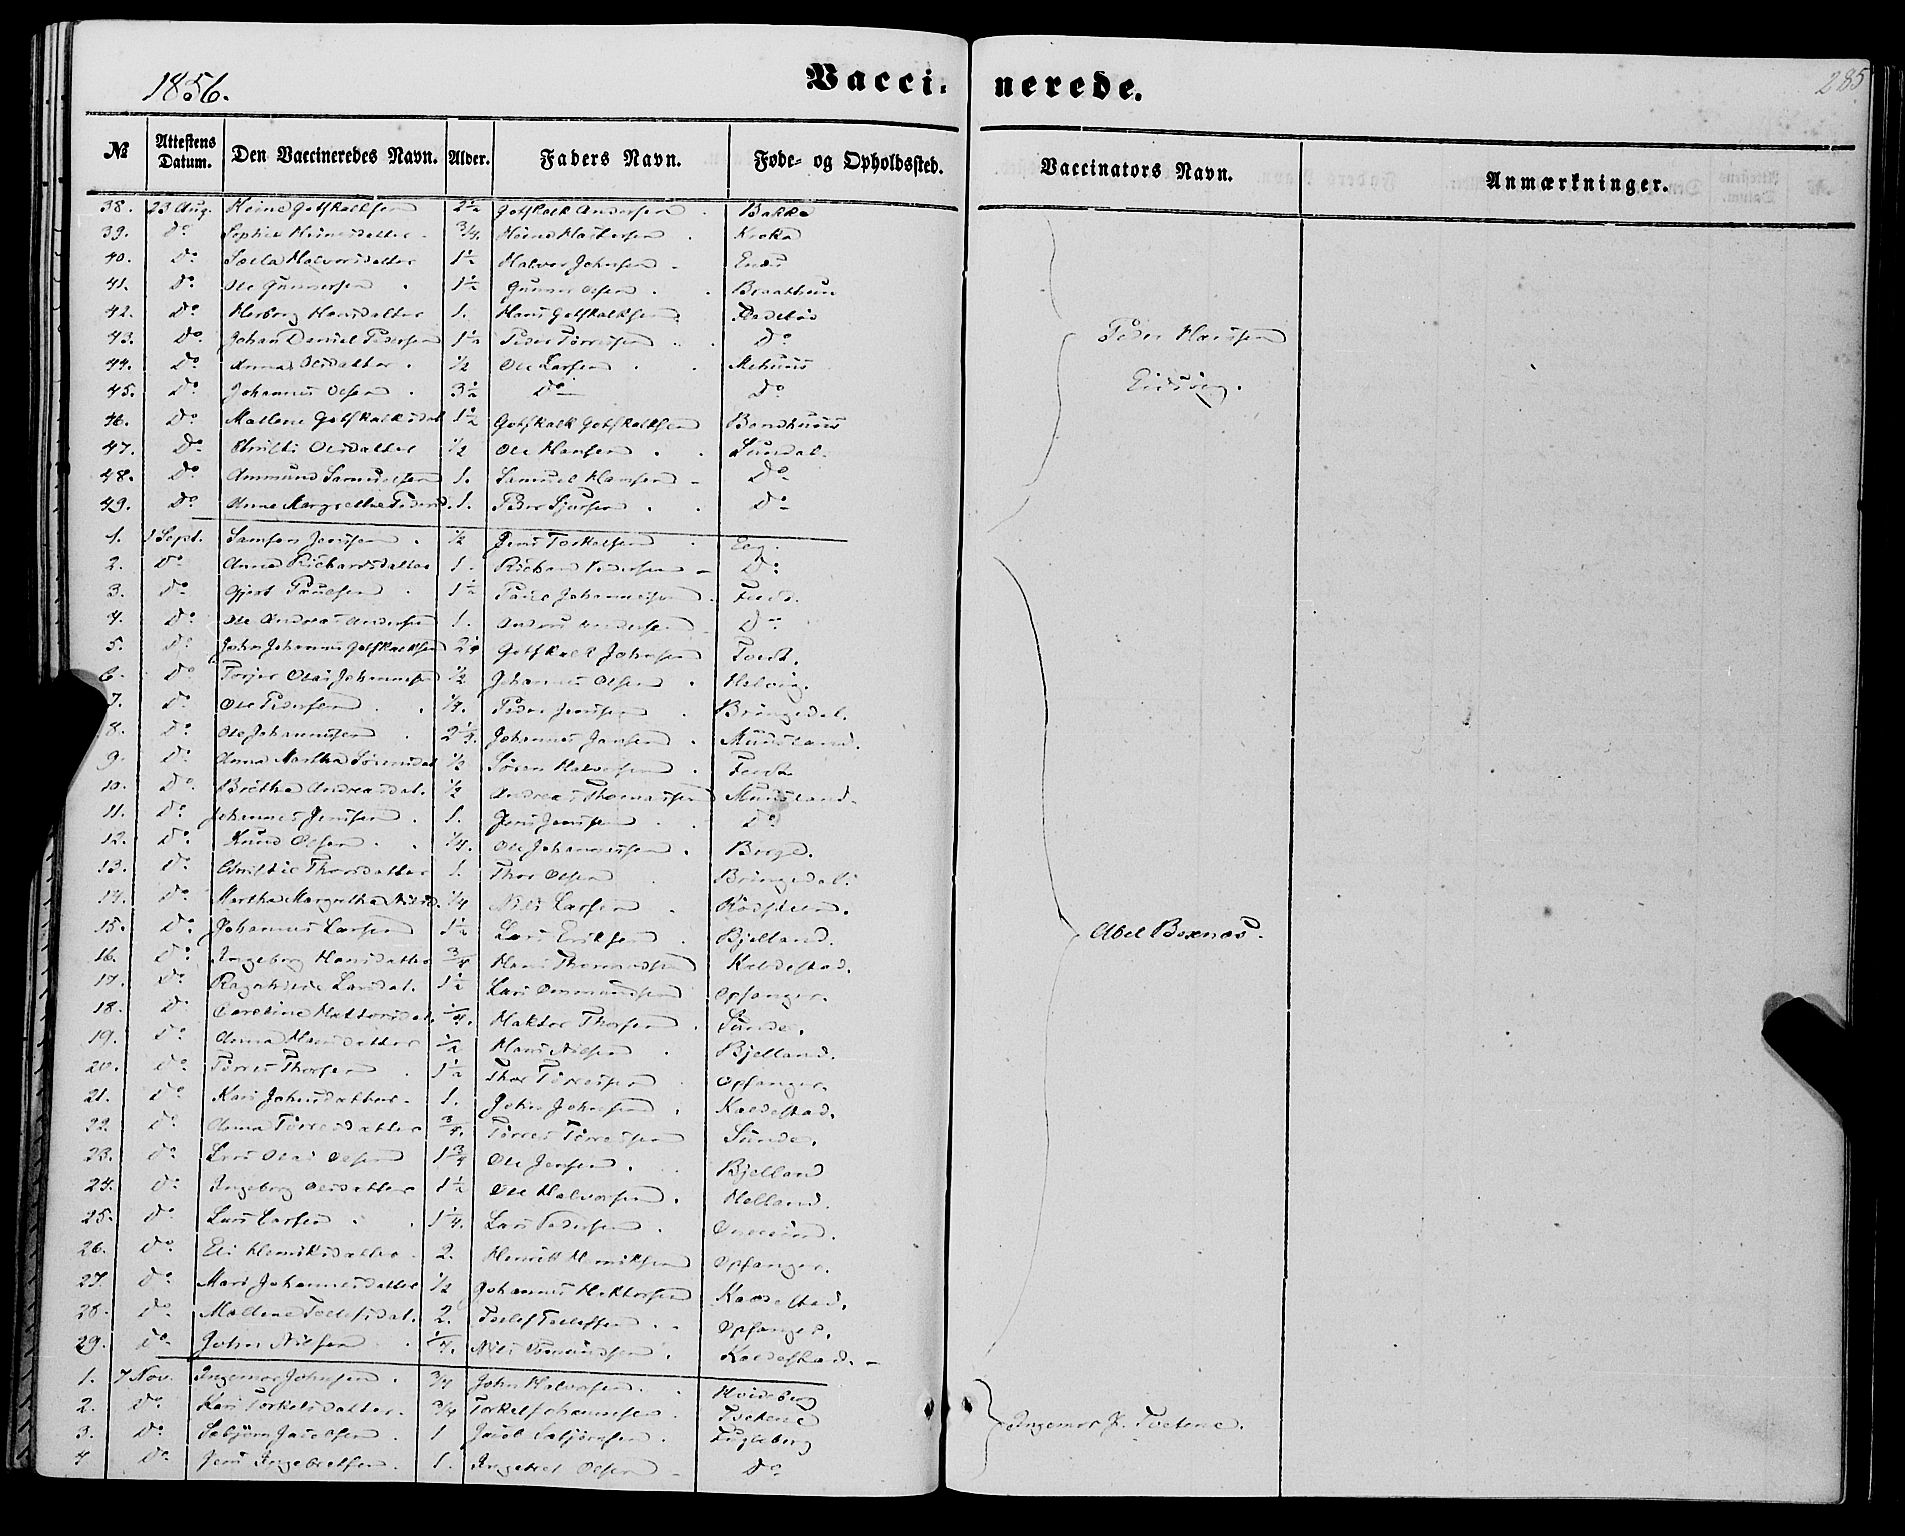 1856. Vaccinerede. 285
№ Attestens Datum. Den Vaccineredes Navn. Alder. Faders Navn. Føde- og Opholdssted. Vaccinators Navn. Anmærkninger.
38. 23 Aug. Heine Gotskalksen 2½ Gotskalk Andersen Bakke
39. Do Sophie Heinesdatter ¾. Heine
40. Do Halvorsdatter 1½ Halvor Johnsen
41. Do Ole Gunnersen 1½ Gunner Olsen Braathuun
42. Do Herborg Hansdatter 1. Hans Gotskalksen
43. Do Johan Daniel Pedersen 1½ Peder Do
44. Do Anna Olesdatter ½ Ole Larsen
45. Do Johannes Olsen 3½ Do Do
46. Do Mallene Gotskalksdat 1½ Gotskalk Gotskalksen Bondhuus
47. Do Olesdatter ½ Ole Hansen Sundal.
48. Do Ammund Samuelsen 1. Samuel Hansen Do
49. Do Anne Margrethe Pedersd. 1. Peder Sjursen Do
Peder Hanssen
Eidsvig.
1. 1 Sept. Samson Jensen ½ Jens Torkelsen Eeg.
2. Do Anna Richardsdatter 1. Richard Pedersen Do
3. Do Gjert Paulsen 1½ Paul Johannesen
4. Do Ole Andreas Andersen 1. Anders Andersen Do
5. Do John Johannes Gotskalksen 2¼ Gotskalk Johnsen
6. Do Torjer Olai Johannesen ½ Johannes Olsen Helvig.
7. Do Ole Pedersen ¼. Peder Jensen Bringedal.
8. Do Ole Johannesen 2¼. Johannes Jansen Mundland.
9. Do Anna Martha Sørensdat ½ Søren Halvorsen
10. Do Brithe Andreasdat. ½ Andreas Thomassen Mundland.
11. Do Johannes Jensen 1. Jens Jensen Do
12. Do Knud Olsen ¼. Ole Johannesen Berge.
13. Do Christie Thorsdatter 1. Thor Olsen Bringedal.
14. Do Martha Margretha Nilsd. ¼ Nils Larsen
15. Do Johannes Larsen 1½ Lars Eriksen Bjelland.
16. Do Ingeborg Hansdatter ¾ Hans Kaldestad.
17. Do Ragnhilde Larsdat. 1½ Lars Ommundsen Opsanger.
18. Do Caroline Haktorsdat. ¼. Haktor Thorsen Sunde.
19. Do Anna Hansdatter ½ Hans Nilsen Bjelland.
20. Do Tørres Thorsen 1½ Thor Tørressen Opsanger.
21. Do Kari Johnsdatter 1. John Johnsen Kaldestad.
22. Do Anna Tørresdatter ¾. Tørres Tørressen Sunde.
23. Do Lars Olai Olsen 1¾ Ole Jensen Bjelland
24. Do Ingeborg Olesdatter 1½ Ole Halvorsen Helland.
25. Do Lars Larsen 1¼. Lars Pedersen
26. Do Eli Henriksdatter 2. Henrik Henriksen Opsanger.
27. Do Mari Johannesdatter ½ Johannes Hektorsen Kaldestad.
28. Do Mallene Tollefsdat. 2. Tollef Tollefsen Opsanger.
29. Do John Nilsen ¼. Nils Kaldestad.
Abel Boxnæs.
1. 7 Nov. Ingemor Johnsen ¾ John Halvorsen Hvideberg
2. Do Kari Torkelsdatter ¾ Torkel Johannesen Tvetene
3. Do Jacobsen 1 Jacob Fugleberg
4 Do Jens Ingebretsen 1. Ingebret Olsen Do
Ingemor J. Tvetene.